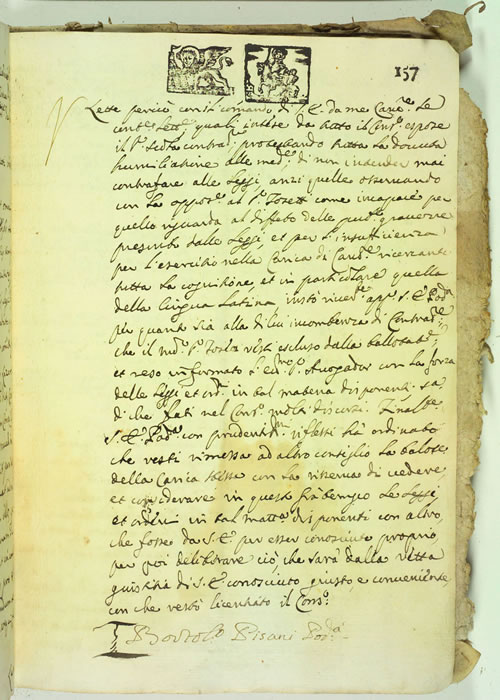 157
Lette perciò con il comando di S. E. da me Canc.e le
cont.e lett.e quali intese da tutto il Cons.o espose
il S.r Scola contrad.e protestando tutta la dovuta
humiliatione alle med.e di non intender mai
contrafare alle Leggi anzi quelle osservando
con la oppos.e al S.r Tosetti come incapace per
quello riguarda al difato delle
prescritto dalle Leggi et per l'insufficienza
per l'esercitio nella Carica di Canc.e ricercante
tutta la cognitione, et in particolare quella
della lingua Latina instò river.e app.o S. E. Pod.a
per quanto sia alla di lui incombenza di Contrad.e
che il S.r resti escluso dalla ballotat.e
et reso informato l' Avogador con la forza
delle Leggi et ord.i in tal materia disponenti. Sa
di che fatti nel Cons.o molti discorsi. Finalm.e
S. E. Pod.a con prudenti riflessi hà ordinato
che resti rimessa ad altro consiglio la balote
della Carica stessa con la riserva di vedere
et considerare in questo frà tempo le Leggi
et ordeni in tal matt.a disponenti con altro,
che fosse da S. E. per esser conosciuto proprio
per poi deliberare ciò, che sarà dalla retta
giustitia di S. E. conosciuto giusto, e conveniente,
con che restò licentiato il Cons.o
Bortol.o Pisani Pod.a